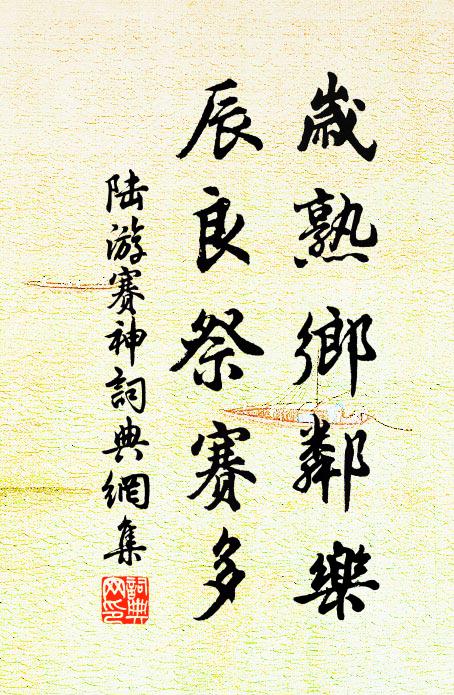 歲熟鄉鄰樂
辰良祭賽多
陆游賽神詞典網集
詞典